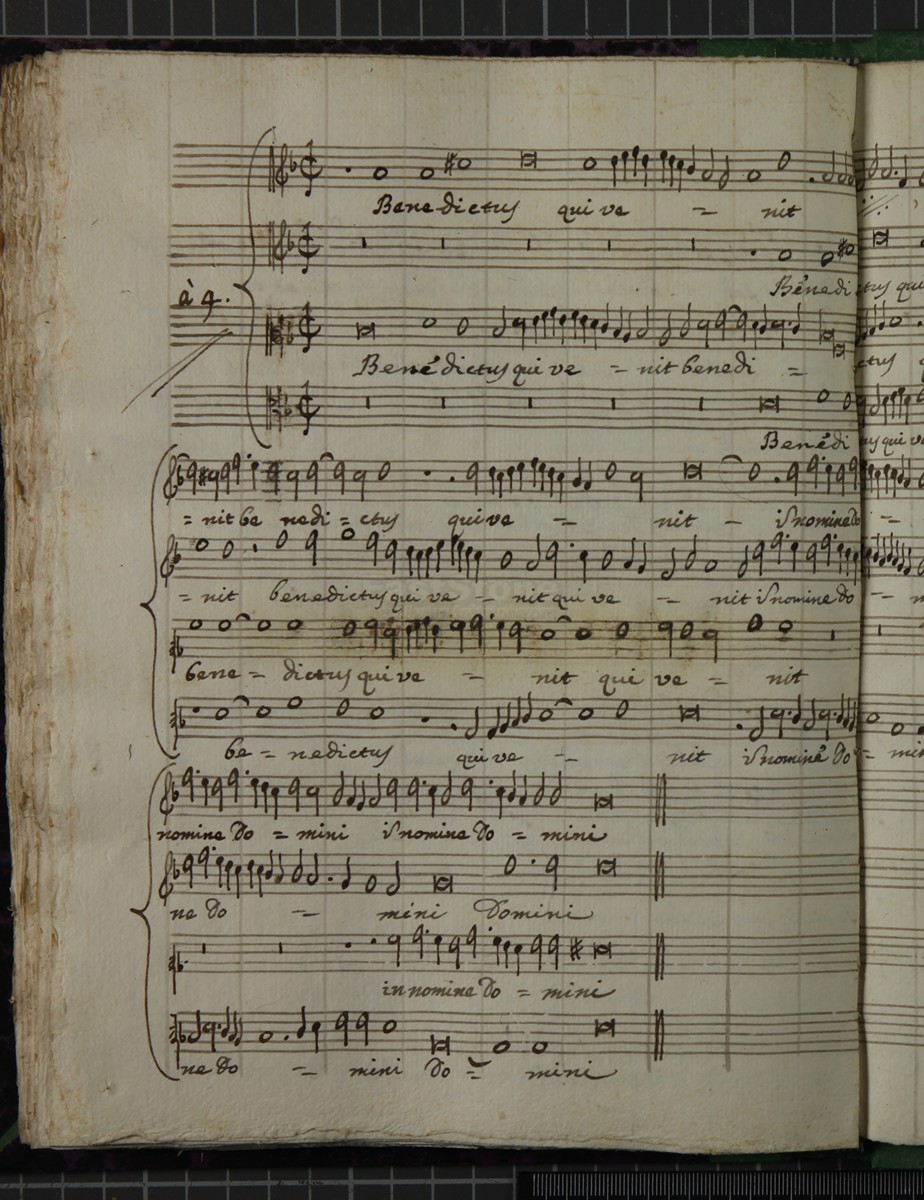 Benedictus qui ve = nit
Bénedi ctus qui
à 4.
Benédictus qui ve = nit benedi = ctus
Benédi
= nit be nedi = ctus qui ve = nit - in nomine Do =
= nit benedictus qui ve - nit qui ve - nit in nomine do =
bene = dictus qui ve - nit qui ve = nit
be = nedictus qui ve - nit in nominé Do = mi
nomine Do = mini in nomine Do = mini
ne Do = mini Domini
in nomine Do = mini
ne Do = mini Do = mini